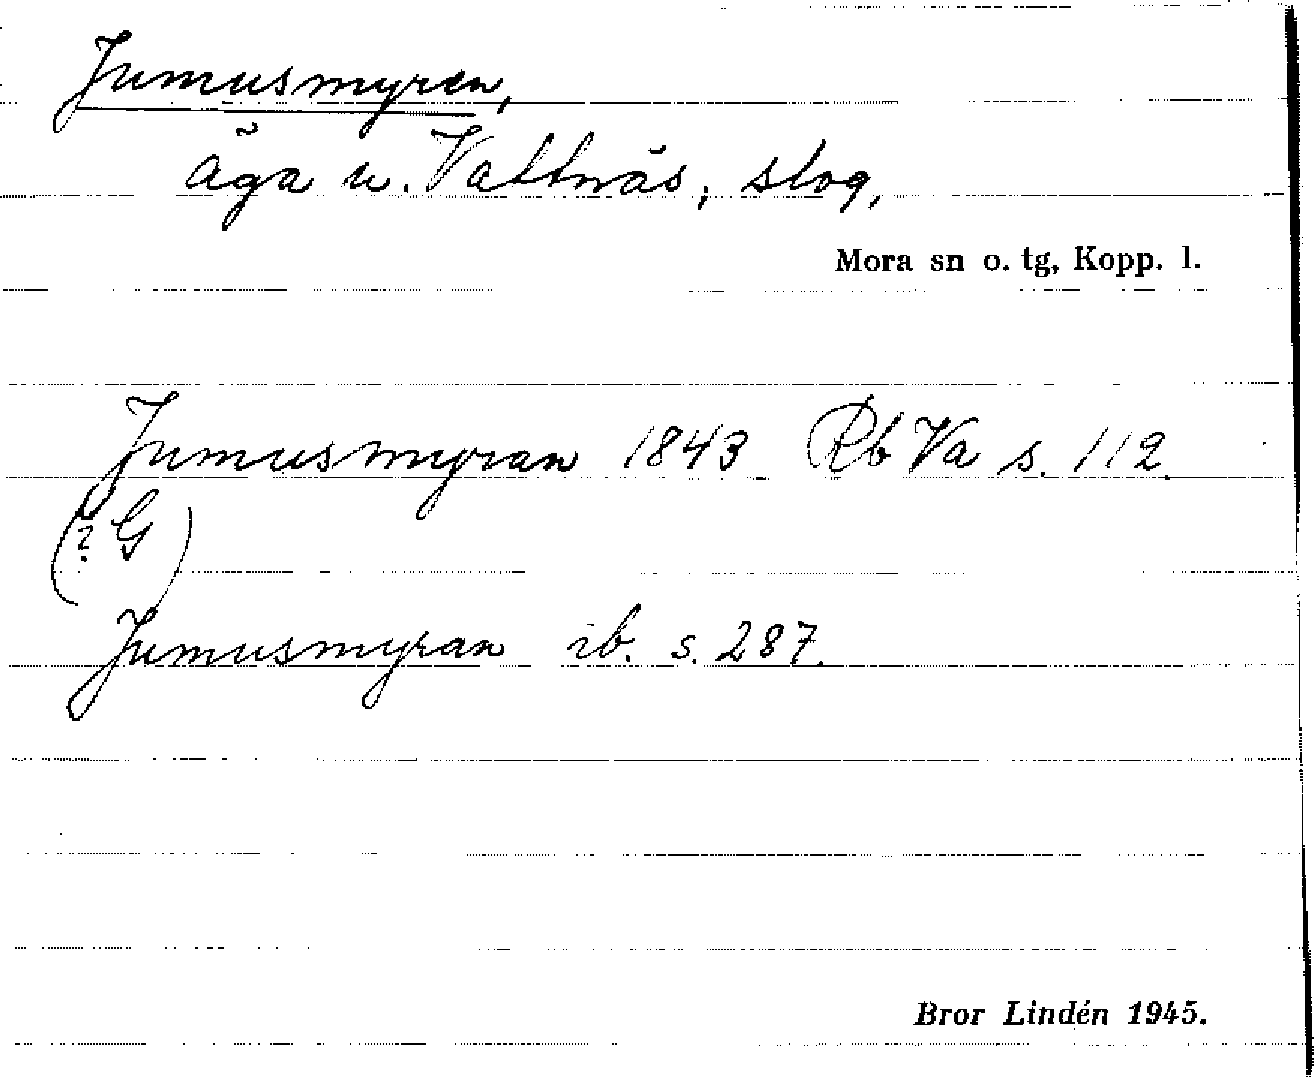 Jumusmyren,
äga u. Vattnäs, skog,
Mora sn o. tg, Kopp. l.
Jumusmyran 1843 Rb Va s. 112.
(? G)
Jumusmyran ib. s. 287.
Bror Lindén 1945.